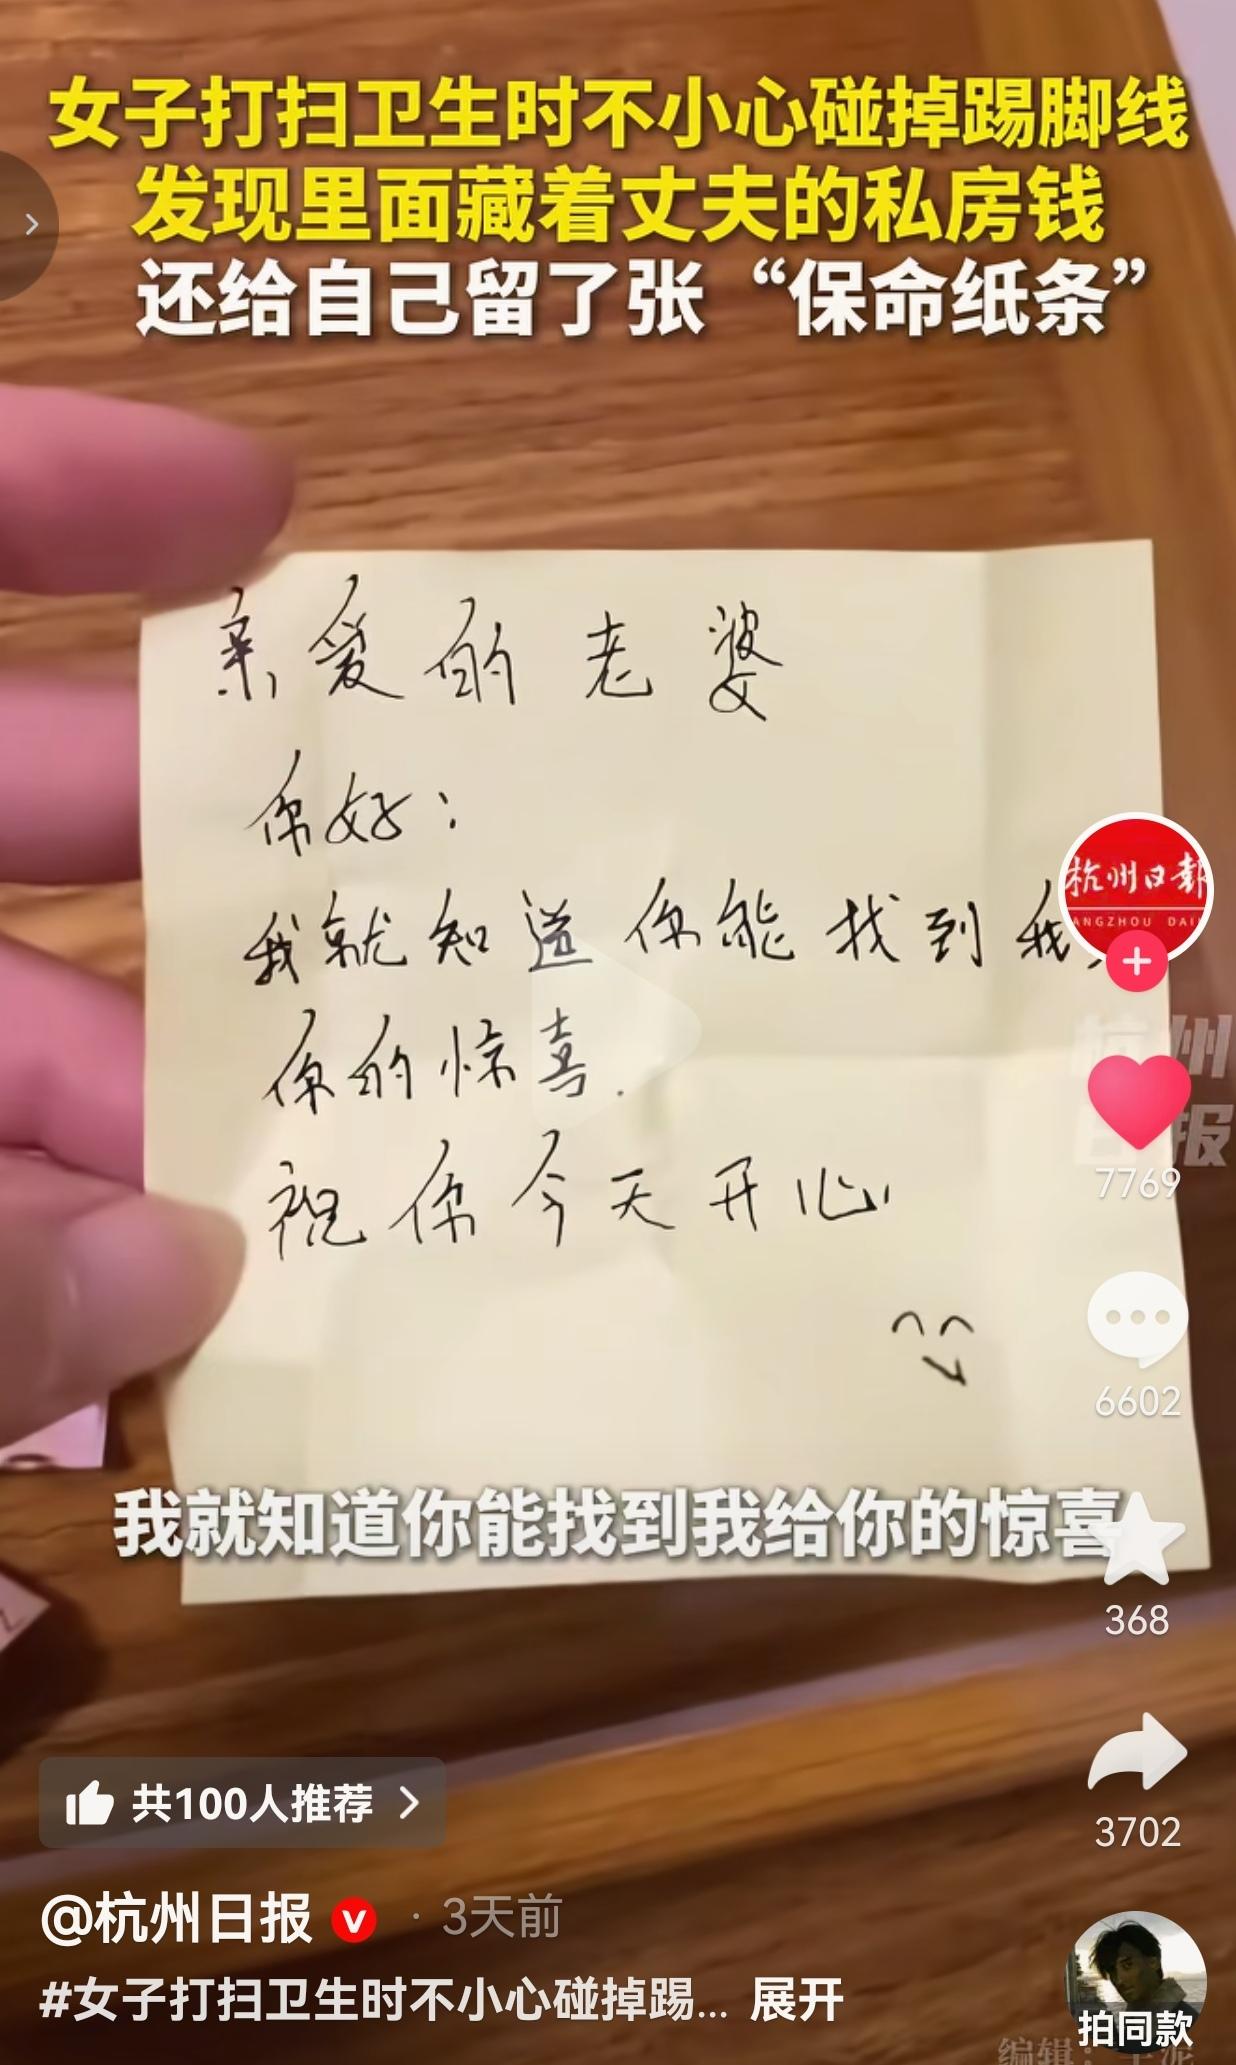 女子打扫卫生时不小心碰掉踢脚线
发现里面藏着丈夫的私房钱
还给自己留了张“保命纸条”
亲爱的老婆
你好：
我就知道你能找到我
你的惊喜.
祝你今天开心
杭州日報
ANGZHOU DAI
杭州
日报
7769
6602
我就知道你能找到我给你的惊喜
368
3702
共100人推荐
@杭州日报 · 3天前
#女子打扫卫生时不小心碰掉踢... 展开
拍同款
编辑：